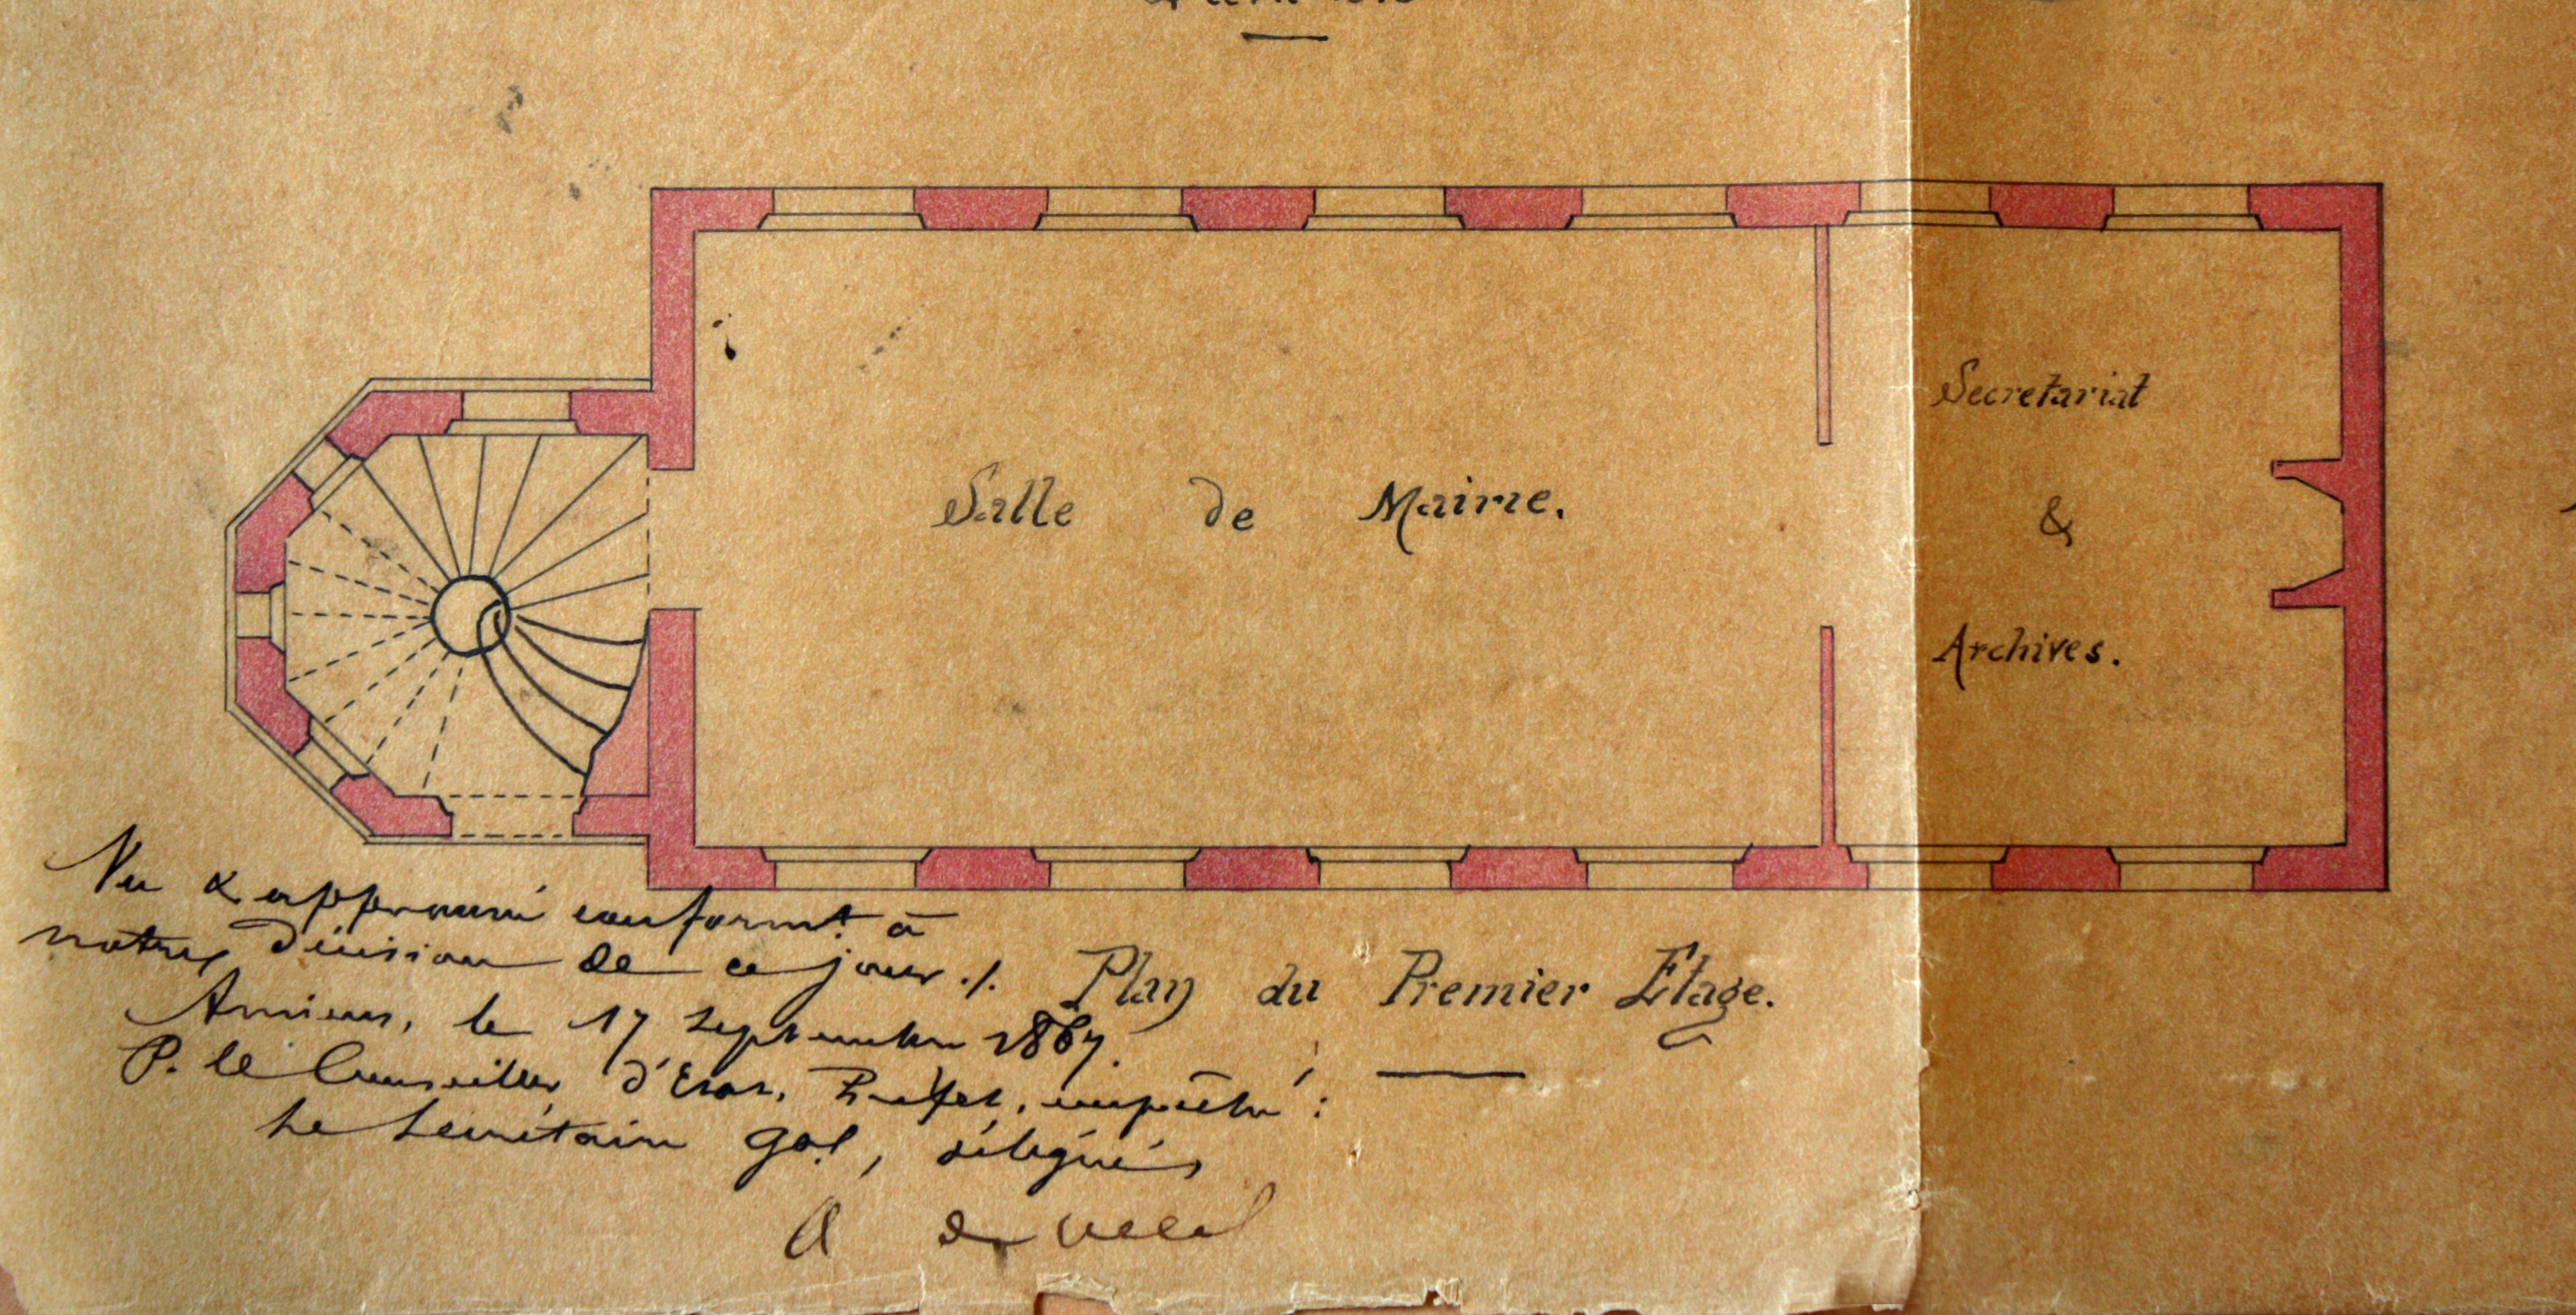 Salle de Mairie.
Secretariat
&
Archives.
Plan du Premier Etage.
Vu & approuvé conformt. à
notre décision de ce jour ./.
Amiens, le 17 septembre 1867.
P. le Conseiller d'Etat, Préfet, empêché :
Le Secrétaire gal, délégué,